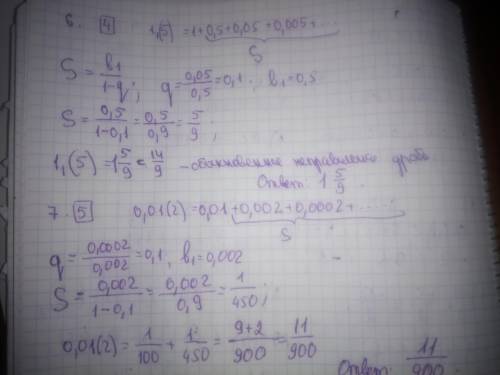 6. 4 1,(5) = 1+0,5+0,05+0,005+...
S
S = b₁/(1-q); q = 0,05/0,5 = 0,1; b₁=0,5
S = 0,5/(1-0,1) = 0,5/0,9 = 5/9;
1,(5) = 1 5/9 = 14/9 - обыкновенная неправильная дробь
Ответ: 1 5/9.
7. 5 0,01(2) = 0,01+0,002+0,0002+...
S
q = 0,0002/0,002 = 0,1, b₁=0,002
S = 0,002/(1-0,1) = 0,002/0,9 = 1/450;
0,01(2) = 1/100 + 1/450 = (9+2)/900 = 11/900
Ответ: 11/900